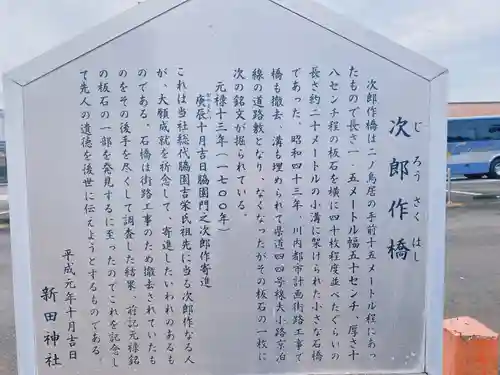 次郎作橋
じろうさくはし
次郎作橋は二ノ鳥居の手前十五メートル程にあっ
たもので長さ一、五メートル幅五十センチ、厚さ十
八センチ程の板石を横に四十枚程度並べたぐらいの
長さ約二十メートルの小溝に架けられた小さな石橋
であった。昭和四十三年、川内都市計画街路工事で
橋も撤去、溝も埋められて県道四四号線大小路京泊
線の道路敷となり、なくなったがその板石の一枚に
次の銘文が掘られている。
元禄十三年(一七〇〇年)
庚辰十月吉日脇園門之次郎作寄進
これは当社総代脇園吉栄氏祖先に当る次郎作なる人
が、大願成就を祈念して、寄進したいわれのあるも
のである。石橋は街路工事のため撤去されていたも
のをその後手を尽くして調査した結果、前記元禄銘
の板石の一部を発見するに至ったのでこれを記念し
て先人の遺徳を後世に伝えようとするものである。
平成元年十月吉日
新田神社